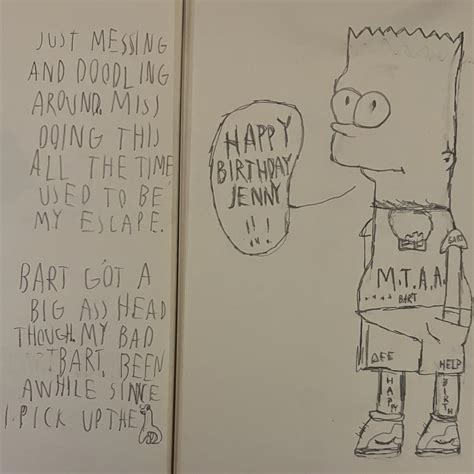 JUST MESSING
AND DOODLING
AROUND. MISS
DOING THIS
ALL THE TIME,
USED TO BE
MY ESCAPE.
BART GOT A
BIG ASS HEAD
THOUGH. MY BAD
BART, BEEN
AWHILE SINCE
I PICK UP THE
HAPPY
BIRTHDAY
JENNY
!!!
M.T.A.A.
BART
HELP
HAPPY
BIRTH